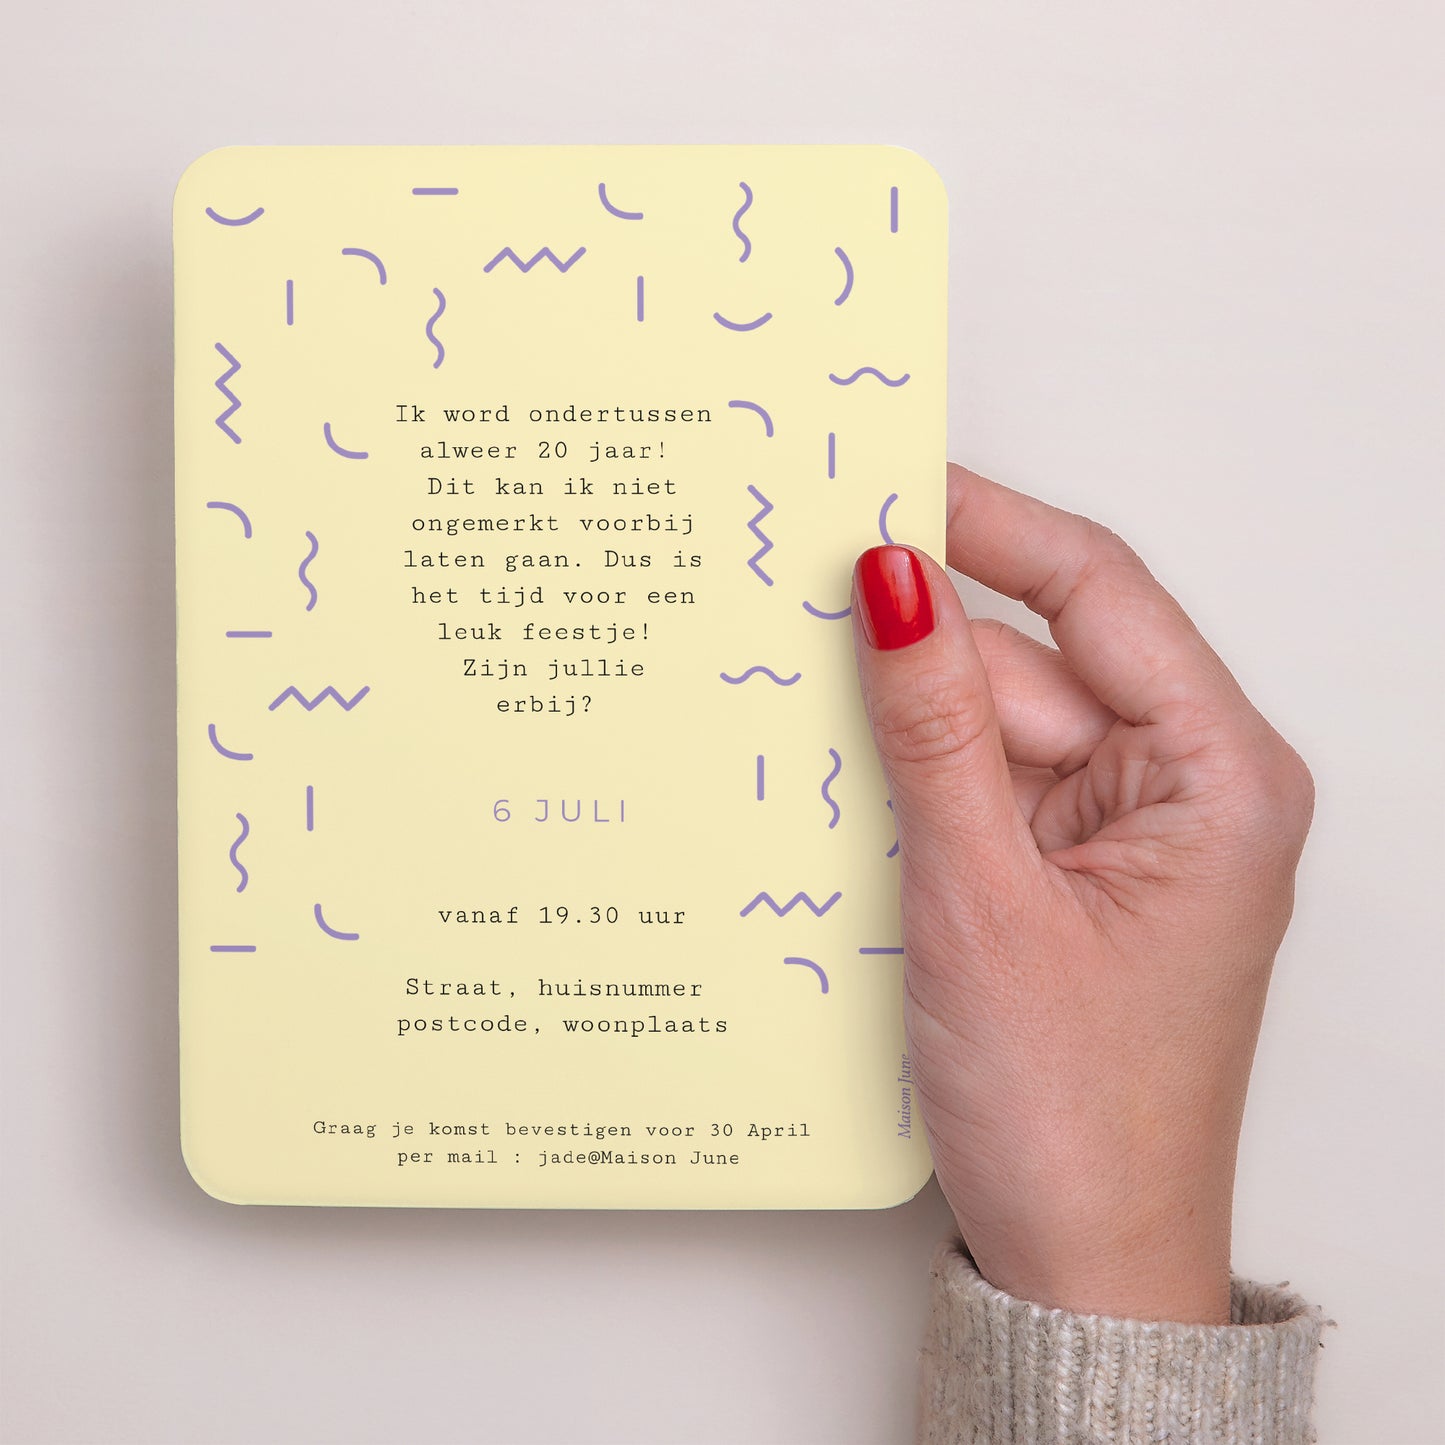 Ik word ondertussen
alweer 20 jaar!
Dit kan ik niet
ongemerkt voorbij
laten gaan. Dus is
het tijd voor een
leuk feestje!
Zijn jullie
erbij?
6 JULI
vanaf 19.30 uur
Straat, huisnummer
postcode, woonplaats
Graag je komst bevestigen voor 30 April
per mail : jade@Maison June
Maison June